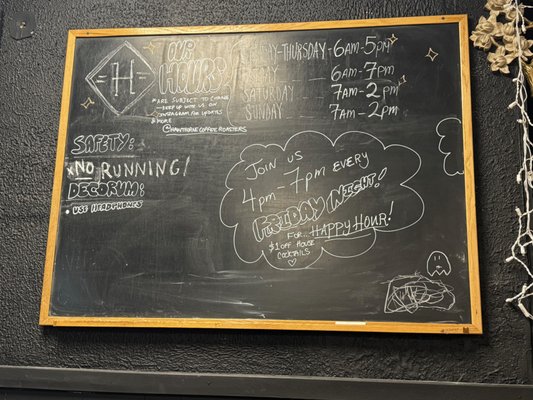 H
OUR
HOURS
* ARE SUBJECT TO CHANGE
KEEP UP WITH US ON
INSTAGRAM FOR UPDATES
& MORE
@HAWTHORNECOFFEEROASTERS
-THURSDAY - 6AM-5PM
6AM-7PM
SATURDAY 7AM-2PM
SUNDAY 7AM-2PM
SAFETY:
NO RUNNING!
DECORUM:
• USE HEADPHONES
JOIN US
4PM-7PM EVERY
FRIDAY NIGHT!
FOR... HAPPY HOUR!
$1 OFF HOUSE
COCKTAILS